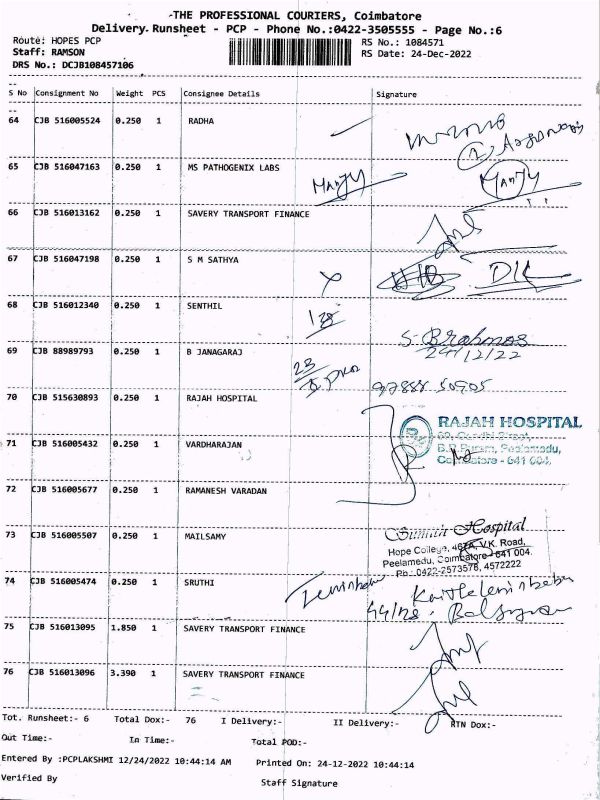 THE PROFESSIONAL COURIERS, Coimbatore
Delivery. Runsheet - PCP - Phone No.:0422-3505555 - Page No.:6
Route: HOPES PCP RS No.: 1084571
Staff: RAMSON RS Date: 24-Dec-2022
DRS No.: DCJB108457106
S No Consignment No Weight PCS Consignee Details Signature
64 CJB 516005524 0.250 1 RADHA
65 CJB 516047163 0.250 1 MS PATHOGENIX LABS
Manjy Manjy
66 CJB 516013162 0.250 1 SAVERY TRANSPORT FINANCE
67 CJB 516047198 0.250 1 S M SATHYA
68 CJB 516012340 0.250 1 SENTHIL
24/12/22
69 CJB 88989793 0.250 1 B JANAGARAJ
70 CJB 515630893 0.250 1 RAJAH HOSPITAL
RAJAH HOSPITAL
71 CJB 516005432 0.250 1 VARDHARAJAN
B.R.Puram, Peelamedu,
Coimbatore - 641 004.
72 CJB 516005677 0.250 1 RAMANESH VARADAN
73 CJB 516005507 0.250 1 MAILSAMY
Hospital
Hope College, V.K. Road,
Peelamedu, Coimbatore - 641 004.
Ph : 0422-2573578, 4572222
74 CJB 516005474 0.250 1 SRUTHI
75 CJB 516013095 1.850 1 SAVERY TRANSPORT FINANCE
76 CJB 516013096 3.390 1 SAVERY TRANSPORT FINANCE
Tot. Runsheet:- 6 Total Dox:- 76 I Delivery:- II Delivery:- RTN Dox:-
Out Time:- In Time:- Total POD:-
Entered By :PCPLAKSHMI 12/24/2022 10:44:14 AM Printed On: 24-12-2022 10:44:14
Verified By Staff Signature